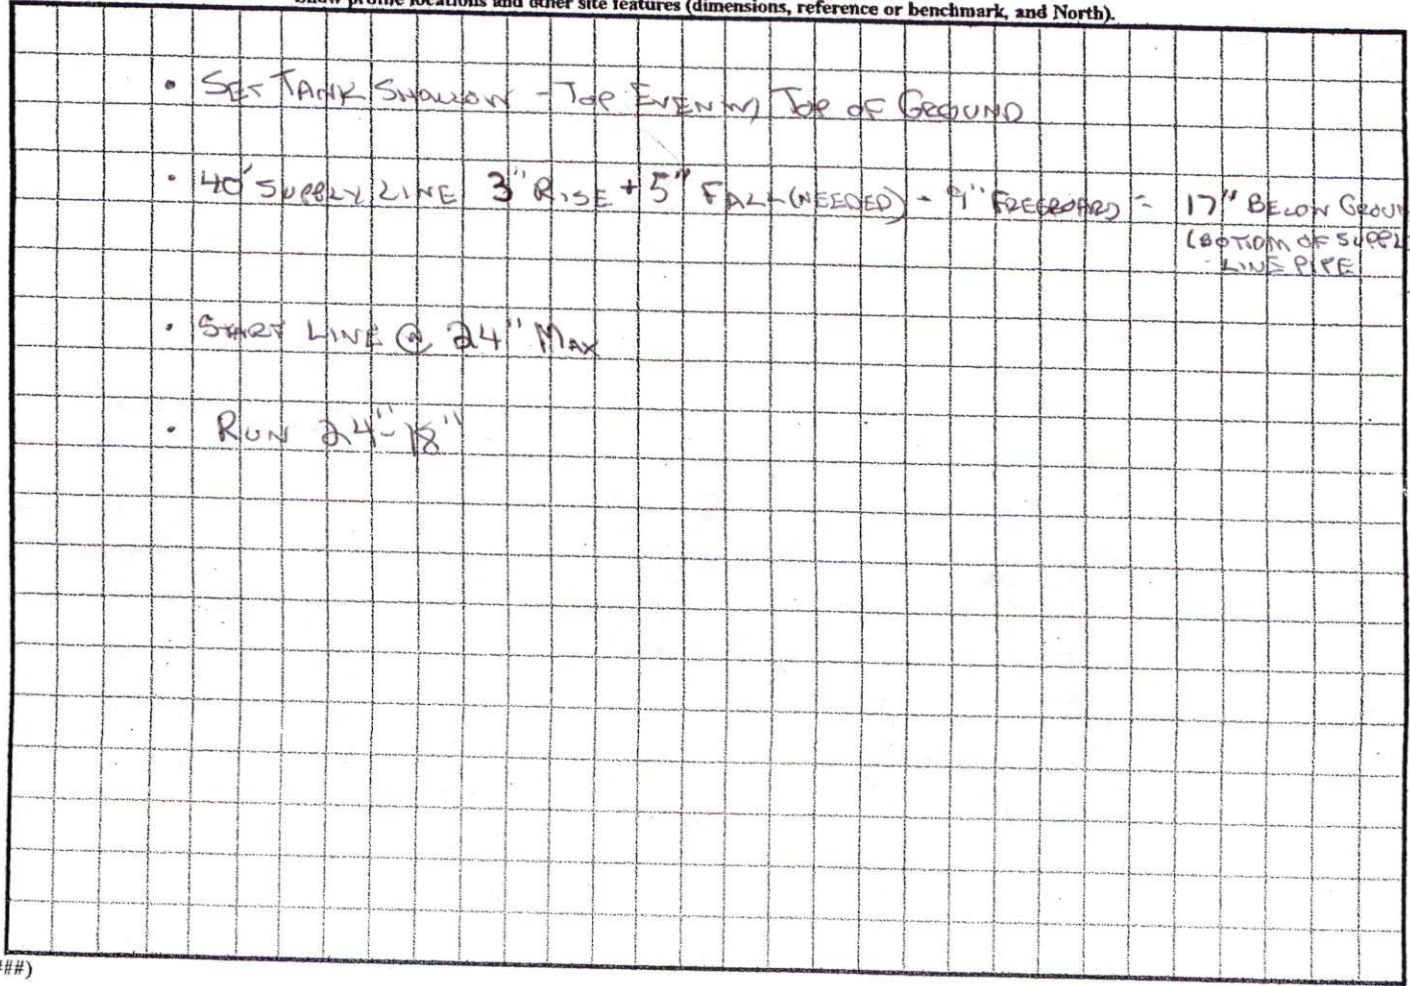 Show profile locations and other site features (dimensions, reference or benchmark, and North).
• SET TANK SHALLOW - TOP EVEN W/ TOP OF GROUND
• 40' SUPPLY LINE 3" RISE + 5" FALL (NEEDED) - 9" FREEBOARD = 17" BELOW GROUN
(BOTTOM OF SUPPL
LINE PIPE
• START LINE @ 24" MAX
• RUN 24"-18"
##)